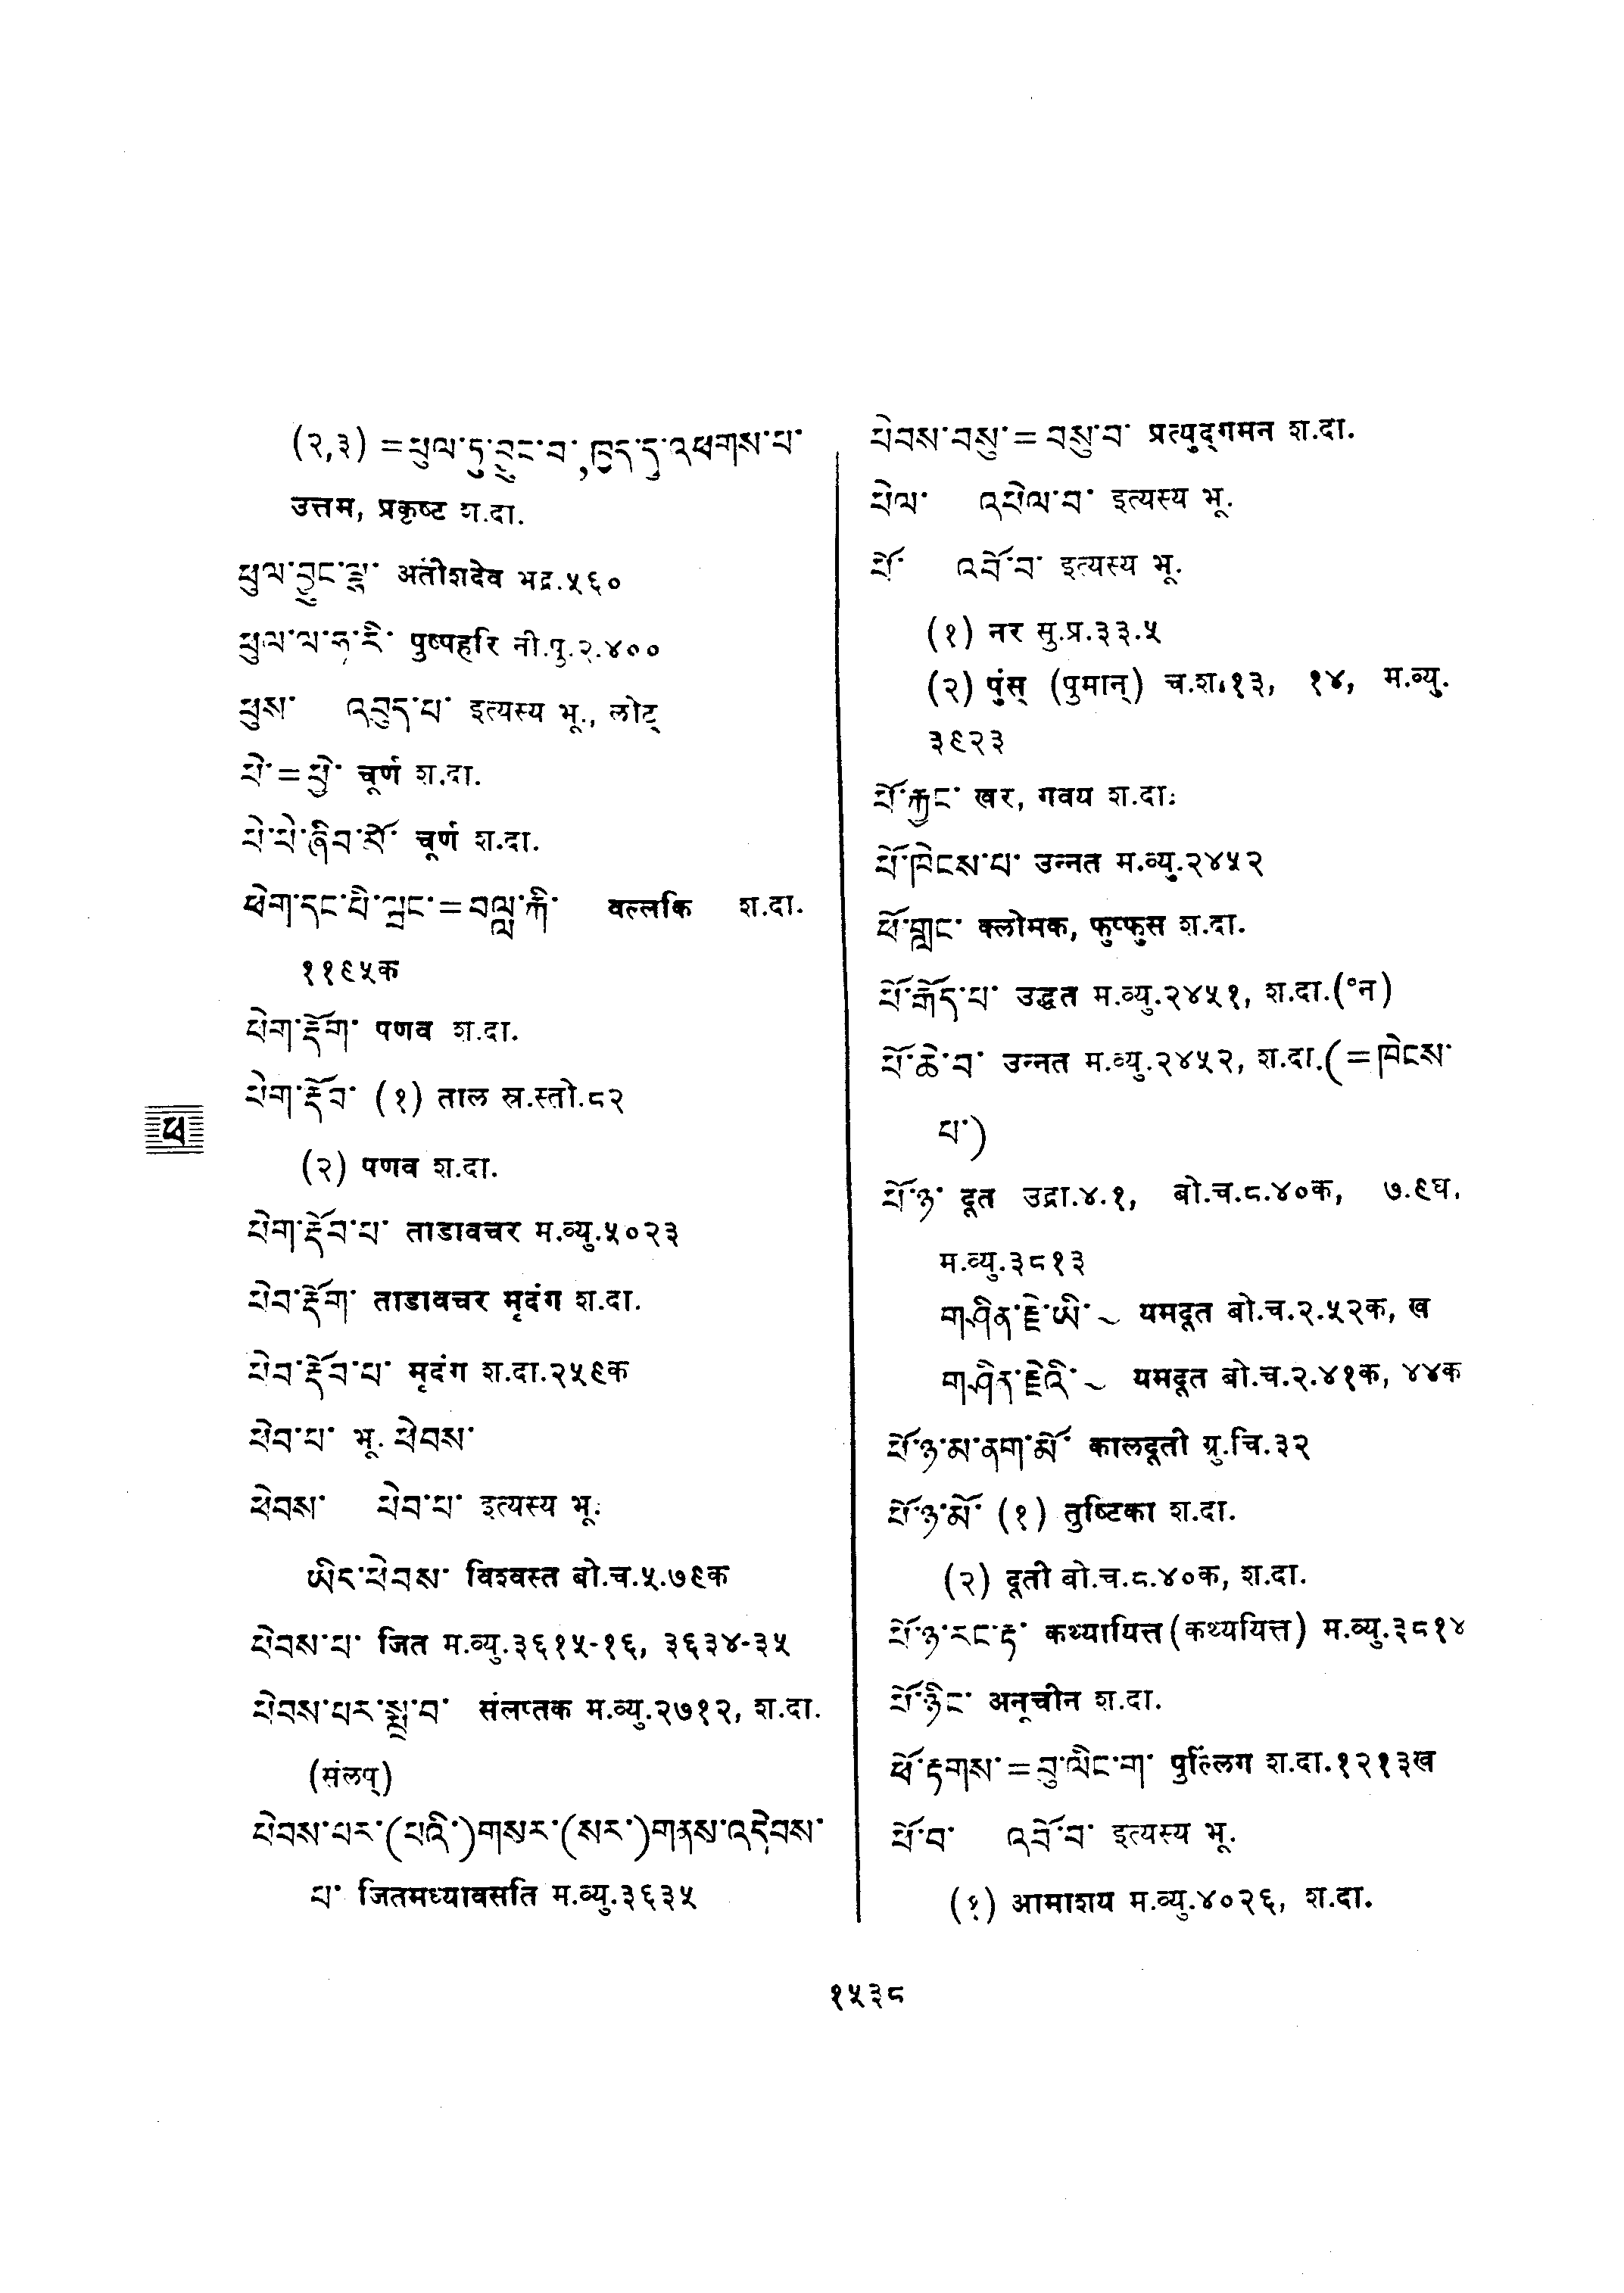 (२,३) =ཕུལ་དུ་བྱུང་བ་,ཁྱད་དུ་འཕགས་པ་
उत्तम, प्रकृष्ट श.दा.
ཕུལ་བྱུང་ལྷ་ अतीशदेव भद्र.५६०
ཕུལ་ལ་ཧ་རི་ पुष्पहरि नी.पु.२.४००
ཕུས་ འབུད་པ་ इत्यस्य भू., लोट्
ཕེ་=ཕྱེ་ चूर्ण श.दा.
ཕེ་ཕེ་ཞིབ་པོ་ चूर्ण श.दा.
ཕེག་དང་པི་ལྦང་=བལླ་ཀི་ वल्लकि श.दा.
११९५क
ཕེག་རྡོག་ पणव श.दा.
ཕེག་རྡོབ་ (१) ताल स्र.स्तो.८२
(२) पणव श.दा.
ཕེག་རྡོབ་པ་ ताडावचर म.व्यु.५०२३
ཕེབ་རྡོག་ ताडावचर मृदंग श.दा.
ཕེབ་རྡོབ་པ་ मृदंग श.दा.२५९क
ཕེབ་པ་ भू. ཕེབས་
ཕེབས་ ཕེབ་པ་ इत्यस्य भू.
ཡིད་ཕེབས་ विश्वस्त बो.च.५.७९क
ཕེབས་པ་ जित म.व्यु.३६१५-१६, ३६३४-३५
ཕེབས་པར་སྨྲ་བ་ संलप्तक म.व्यु.२७१२, श.दा.
(संलप्)
ཕེབས་པར་(པའི་)གསར་(སར་)གནས་འདེབས་
པ་ जितमध्यावसति म.व्यु.३६३५
फ
ཕེབས་བསུ་=བསུ་བ་ प्रत्युद्गमन श.दा.
ཕེལ་ འཕེལ་བ་ इत्यस्य भू.
ཕོ་ འབོ་བ་ इत्यस्य भू.
(१) नर सु.प्र.३३.५
(२) पुंस् (पुमान्) च.श.१३, १४, म.व्यु.
३९२३
ཕོ་རྐྱང་ खर, गवय श.दा.
ཕོ་ཁེངས་པ་ उन्नत म.व्यु.२४५२
ཕོ་གླང་ क्लोमक, फुप्फुस श.दा.
ཕོ་རྒོད་པ་ उद्धत म.व्यु.२४५१, श.दा.(°न)
ཕོ་ཆེ་བ་ उन्नत म.व्यु.२४५२, श.दा.(=ཁེངས་
པ་)
ཕོ་ཉ་ दूत उद्रा.४.१, बो.च.८.४०क, ७.९घ,
म.व्यु.३८१३
གཤིན་རྗེ་ཡི་~ यमदूत बो.च.२.५२क, ख
གཤིན་རྗེའི་~ यमदूत बो.च.२.४१क, ४४क
ཕོ་ཉ་མ་ནག་མོ་ कालदूती ग्रु.चि.३२
ཕོ་ཉ་མོ་ (१) तुष्टिका श.दा.
(२) दूती बो.च.८.४०क, श.दा.
ཕོ་ཉ་རང་རྟ་ कथ्यायित्त(कथ्ययित्त) म.व्यु.३८१४
ཕོ་ཉིང་ अनूचीन श.दा.
ཕོ་རྟགས་=བུ་ལིང་ག་ पुल्लिंग श.दा.१२१३ख
ཕོ་བ་ འབོ་བ་ इत्यस्य भू.
(१) आमाशय म.व्यु.४०२६, श.दा.
१५३८